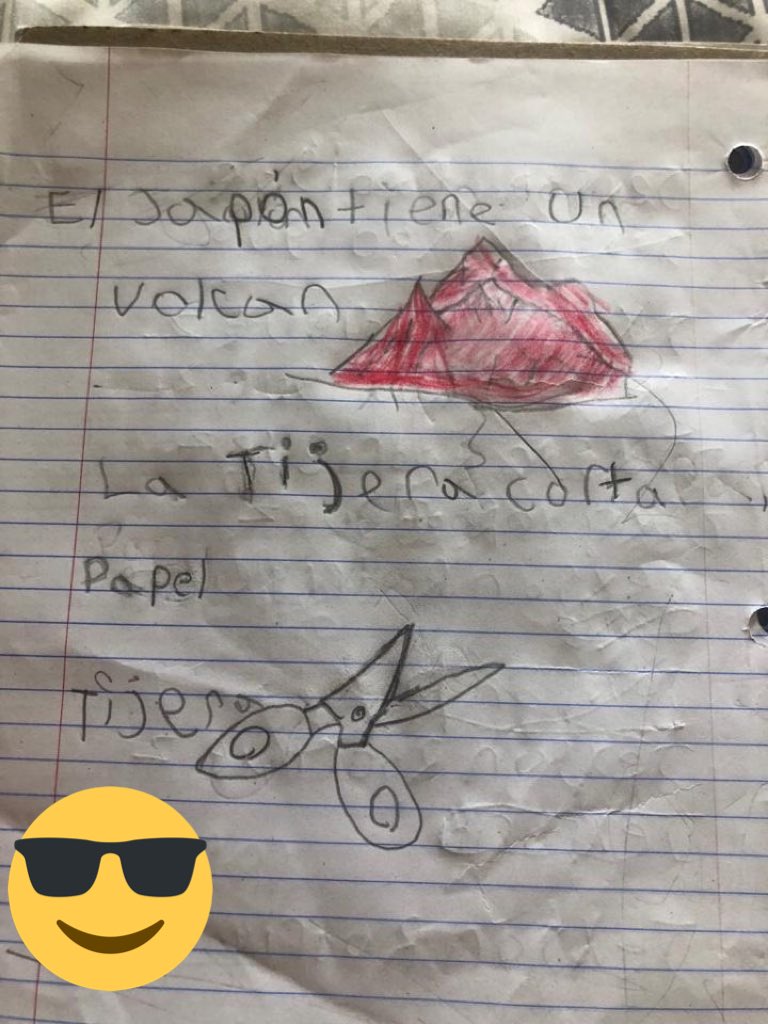 El Japón tiene un
volcan
La Tijera corta
Papel
Tijera